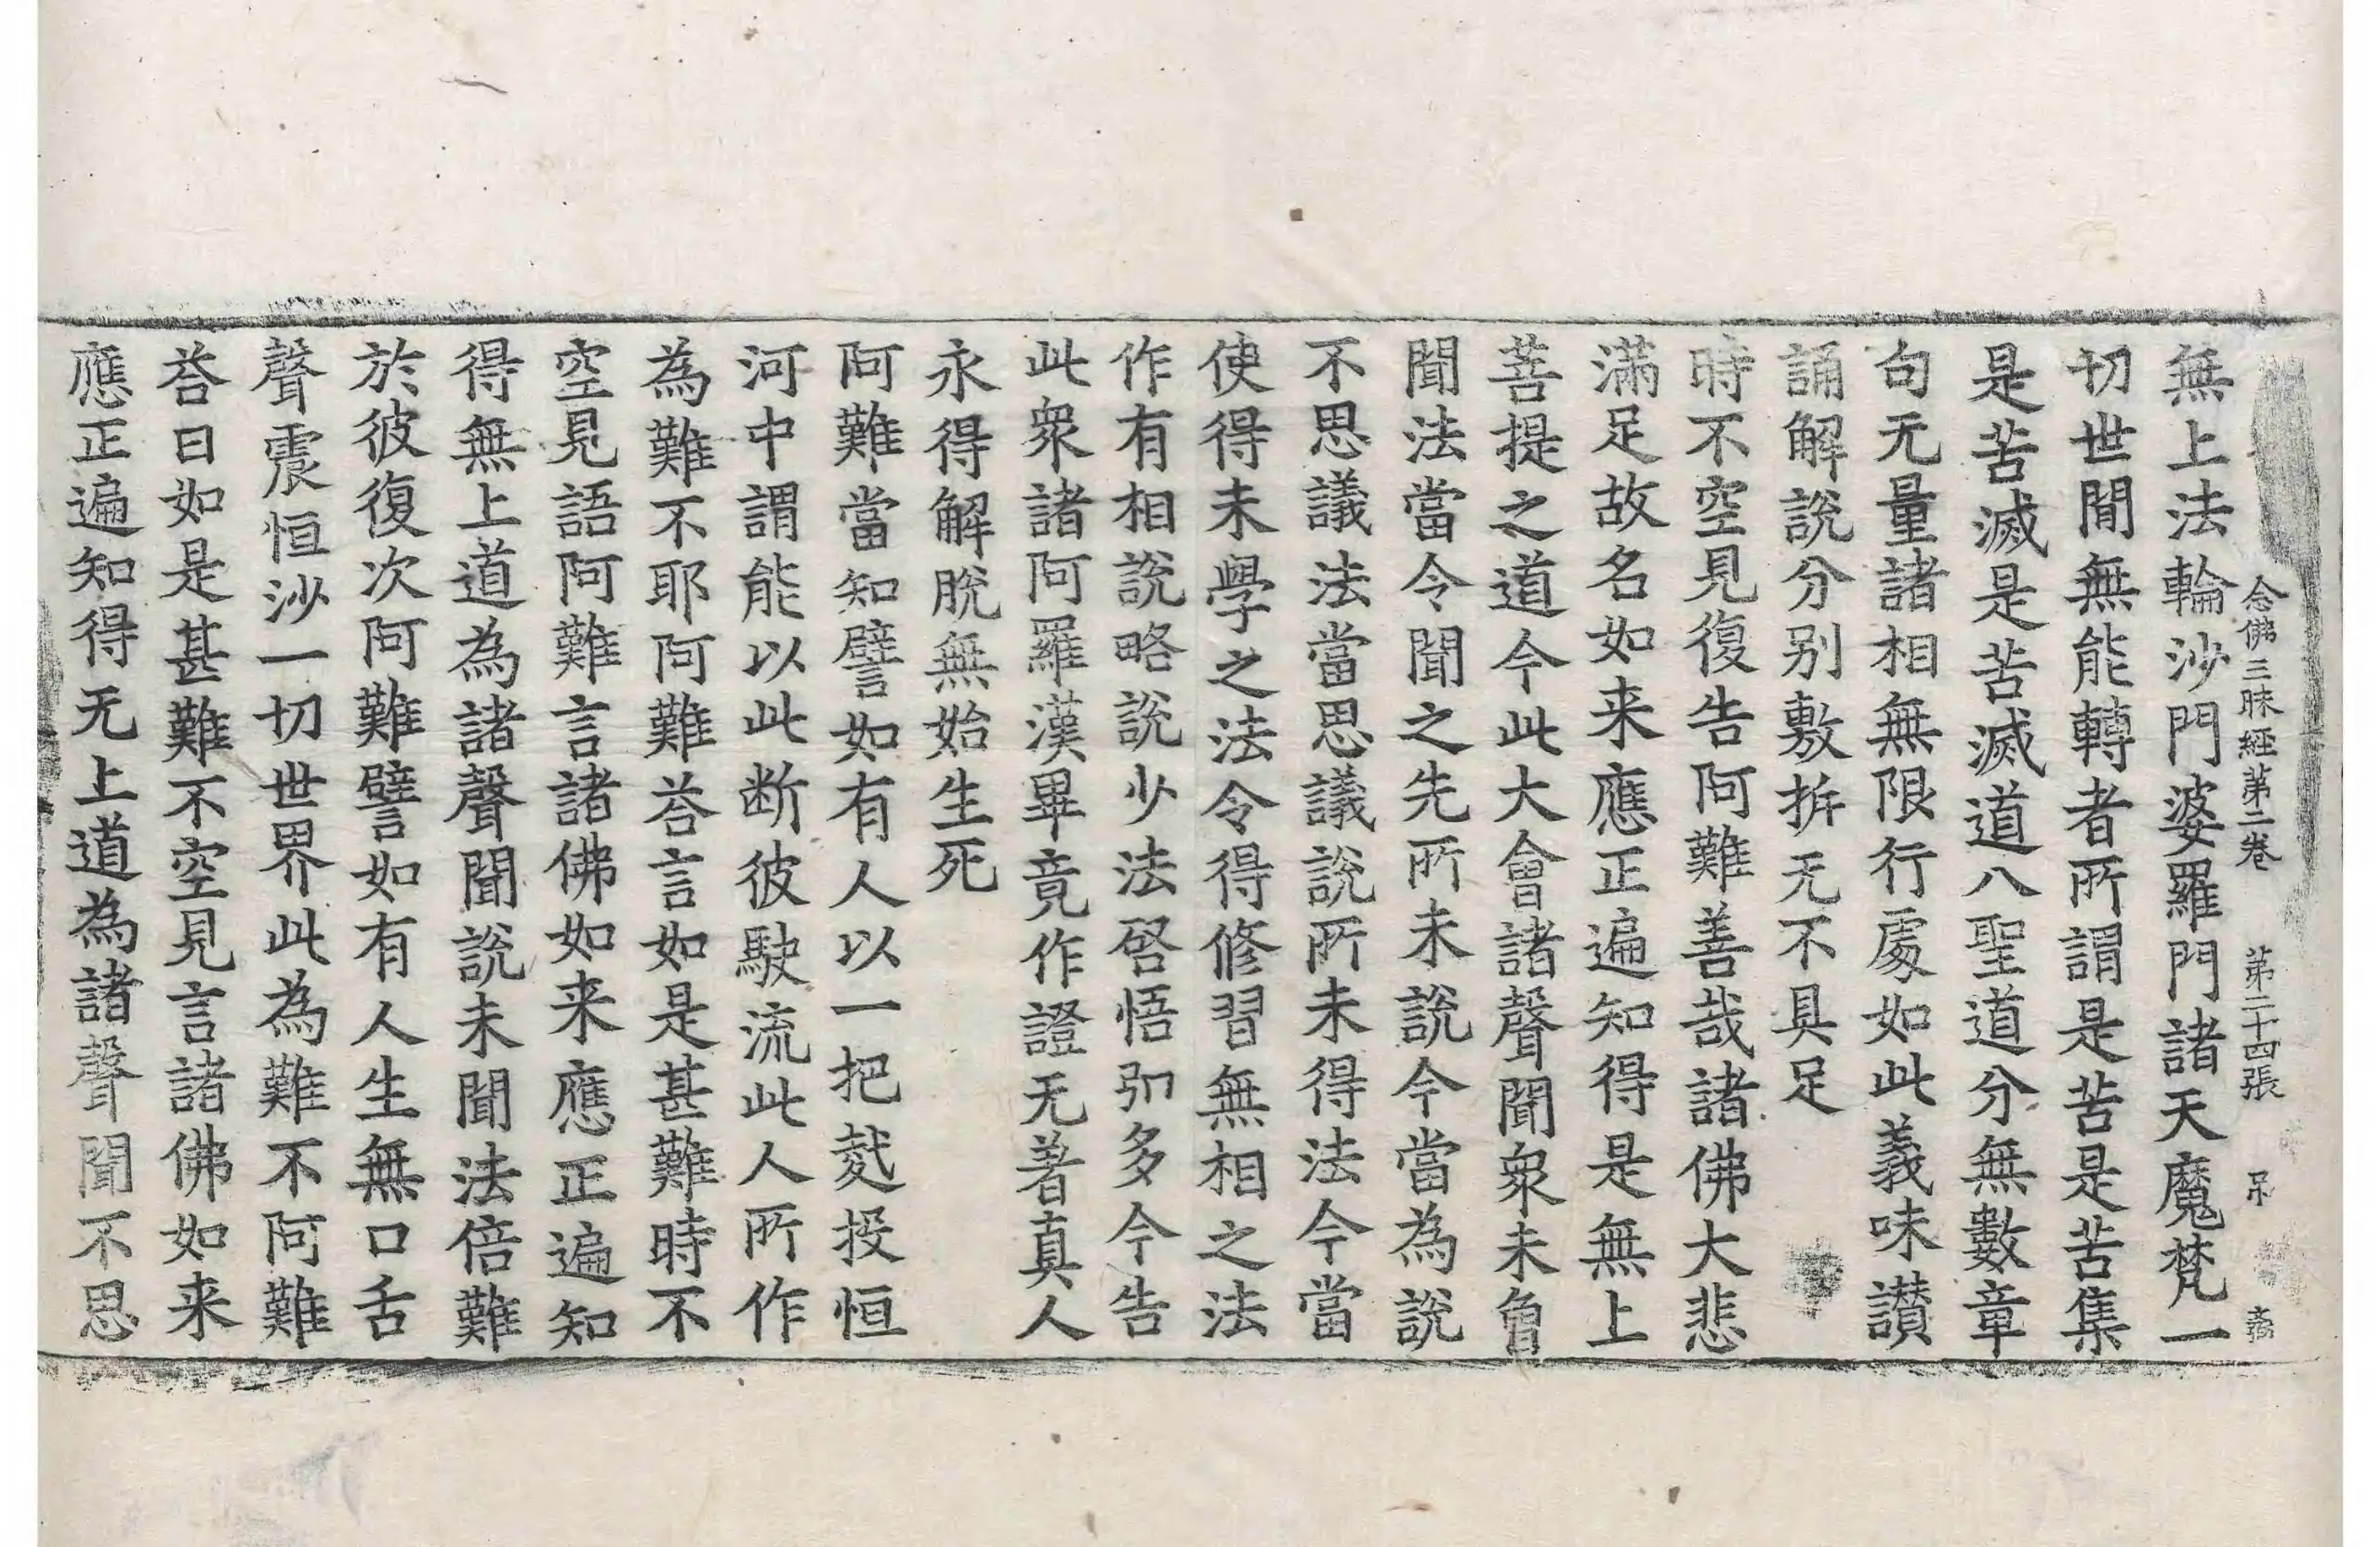 念佛三昧經第二卷 第二十四張 吊
無上法輪沙門婆羅門諸天魔梵一
切世間無能轉者所謂是苦是苦集
是苦滅是苦滅道八聖道分無數章
句无量諸相無限行處如此義味讃
誦解說分别敷拆无不具足
時不空見復告阿難善哉諸佛大悲
滿足故名如来應正遍知得是無上
菩提之道今此大會諸聲聞衆未曾
聞法當今聞之先所未說今當為說
不思議法當思議說所未得法今當
使得未學之法令得修習無相之法
作有相說略說少法啓悟弘多今告
此衆諸阿羅漢畢竟作證无著真人
永得解脫無始生死
阿難當知譬如有人以一把麨投恒
河中謂能以此断彼駛流此人所作
為難不耶阿難荅言如是甚難時不
空見語阿難言諸佛如来應正遍知
得無上道為諸聲聞說未聞法倍難
於彼復次阿難譬如有人生無口舌
聲震恒沙一切世界此為難不阿難
荅曰如是甚難不空見言諸佛如来
應正遍知得无上道為諸聲聞不思